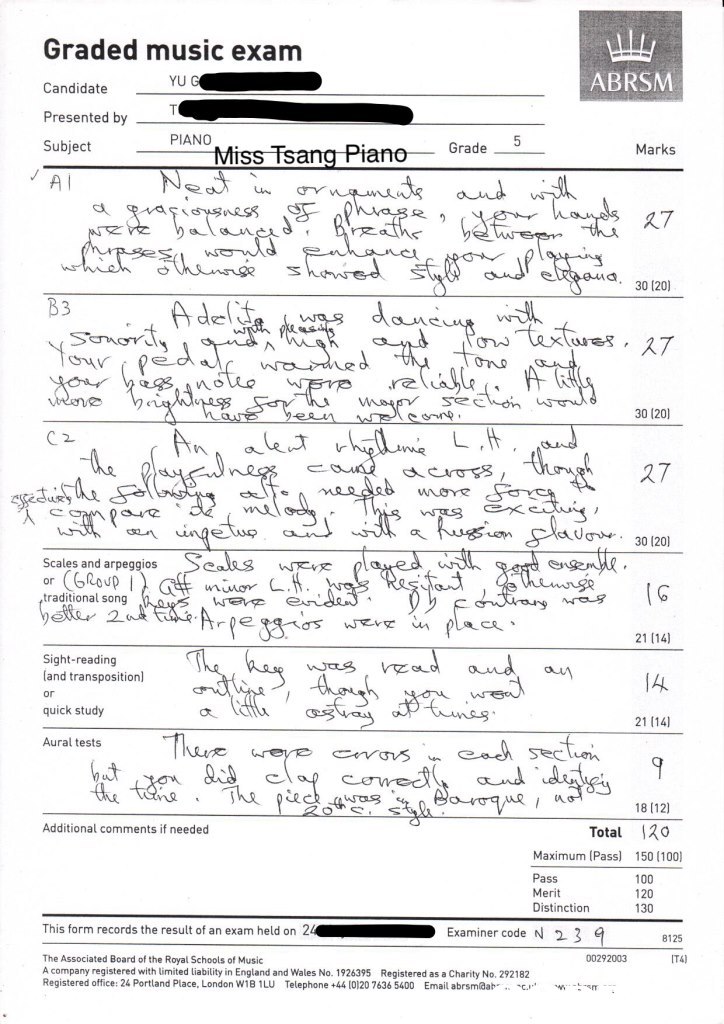 Graded music exam
ABRSM
Candidate YU G
Presented by T
Subject PIANO Grade 5 Marks
Miss Tsang Piano
A1 Neat in ornaments and with
a graciousness of phrase, your hands 27
were balanced. Breaths between the
phrases would enhance your playing
which otherwise showed style and elegance.
30 (20)
B3 Adelita was dancing with
sonority and with pleasing high and low textures. 27
Your pedal warmed the tone and
your bass notes were reliable. A little
more brightness for the major section would
have been welcome. 30 (20)
C2 An alert rhythmic L.H. and
the playfulness came across, though 27
the following needed more force to
effectively compare melody. This was exciting,
with an impetus and with a Russian flavour.
30 (20)
Scales and arpeggios Scales were played with good ensemble.
or (GROUP 1) G# minor L.H. was hesitant, otherwise 16
traditional song keys were evident. Db contrary was
better 2nd time. Arpeggios were in place.
21 (14)
Sight-reading The key was read and an
(and transposition) outline, though you went 14
or a little astray at times.
quick study 21 (14)
Aural tests There were errors in each section 9
but you did clap correctly and identify
the time. The piece was in Baroque, not
20th c. style. 18 (12)
Additional comments if needed Total 120
Maximum (Pass) 150 (100)
Pass 100
Merit 120
Distinction 130
This form records the result of an exam held on 24 Examiner code N 239 8125
The Associated Board of the Royal Schools of Music 00292003 (T4)
A company registered with limited liability in England and Wales No. 1926395 Registered as a Charity No. 292182
Registered office: 24 Portland Place, London W1B 1LU Telephone +44 (0)20 7636 5400 Email